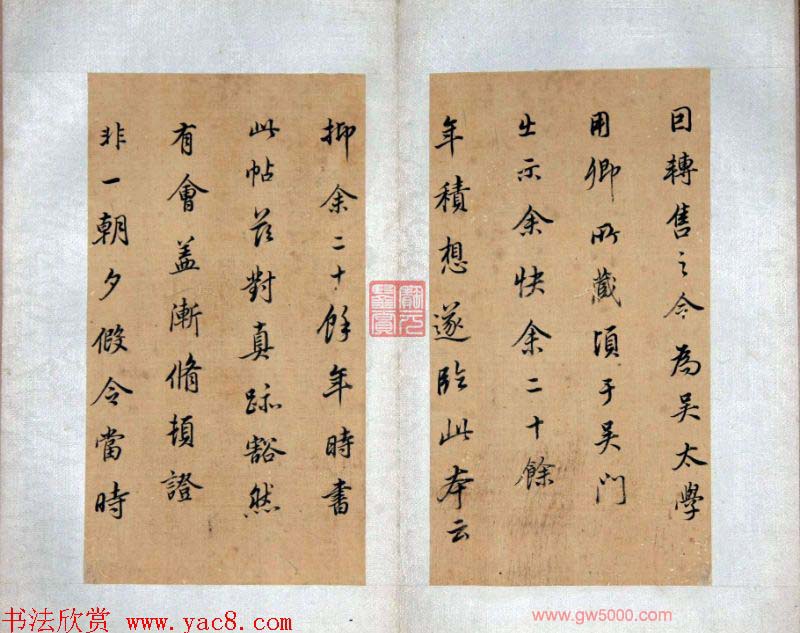 因轉售之今為吳太學
用卿所藏頃于吳門
出示余快余二十餘
年積想遂臨此本云
抑余二十餘年時書
此帖茲對真跡豁然
有會蓋漸脩頓證
非一朝夕假令當時
书法欣赏 www.yac8.com
www.gw5000.com